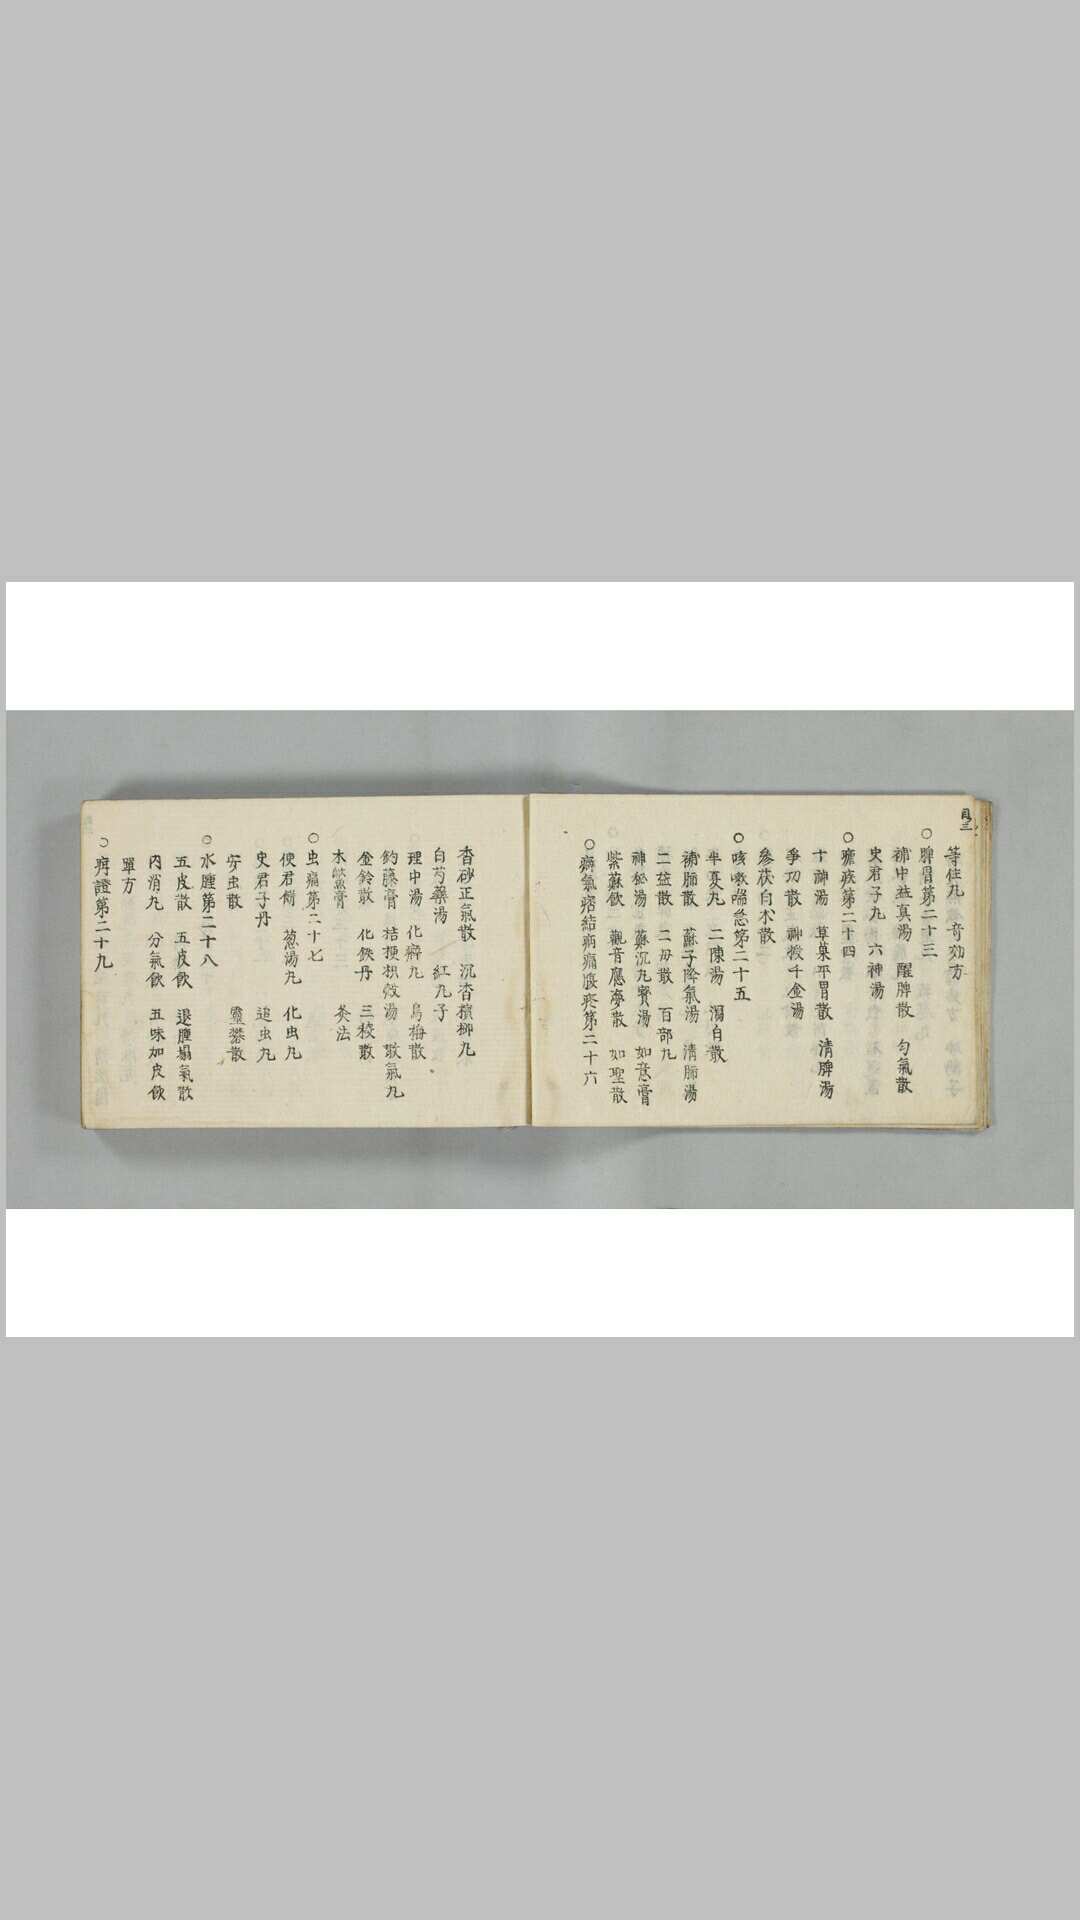 目三
等住丸 奇効方
○脾胃第二十三
補中益真湯 醒脾散 匀氣散
史君子丸 六神湯
○瘧疾第二十四
十神湯 草菓平胃散 清脾湯
爭功散 神授千金湯
參茯白朮散
○咳嗽喘急第二十五
半夏丸 二陳湯 瀉白散
補肺散 蘇子降氣湯 清肺湯
二益散 二母散 百部丸
神秘湯 蘇沉九寶湯 如意膏
紫蘇飲 觀音應夢散 如聖散
○癖氣痞結病痛腹疼第二十六
香砂正氣散 沉香檳榔丸
白芍藥湯 紅丸子
理中湯 化癖丸 烏梅散
釣藤膏 桔梗枳殼湯 散氣丸
金鈴散 化鉄丹 三稜散
木鱉膏 灸法
○虫痛第二十七
使君餅 葱湯丸 化虫丸
史君子丹 追虫丸
安虫散 靈礬散
○水腫第二十八
五皮散 五皮飲 退腫塌氣散
內消丸 分氣飲 五味加皮飲
單方
○疳證第二十九